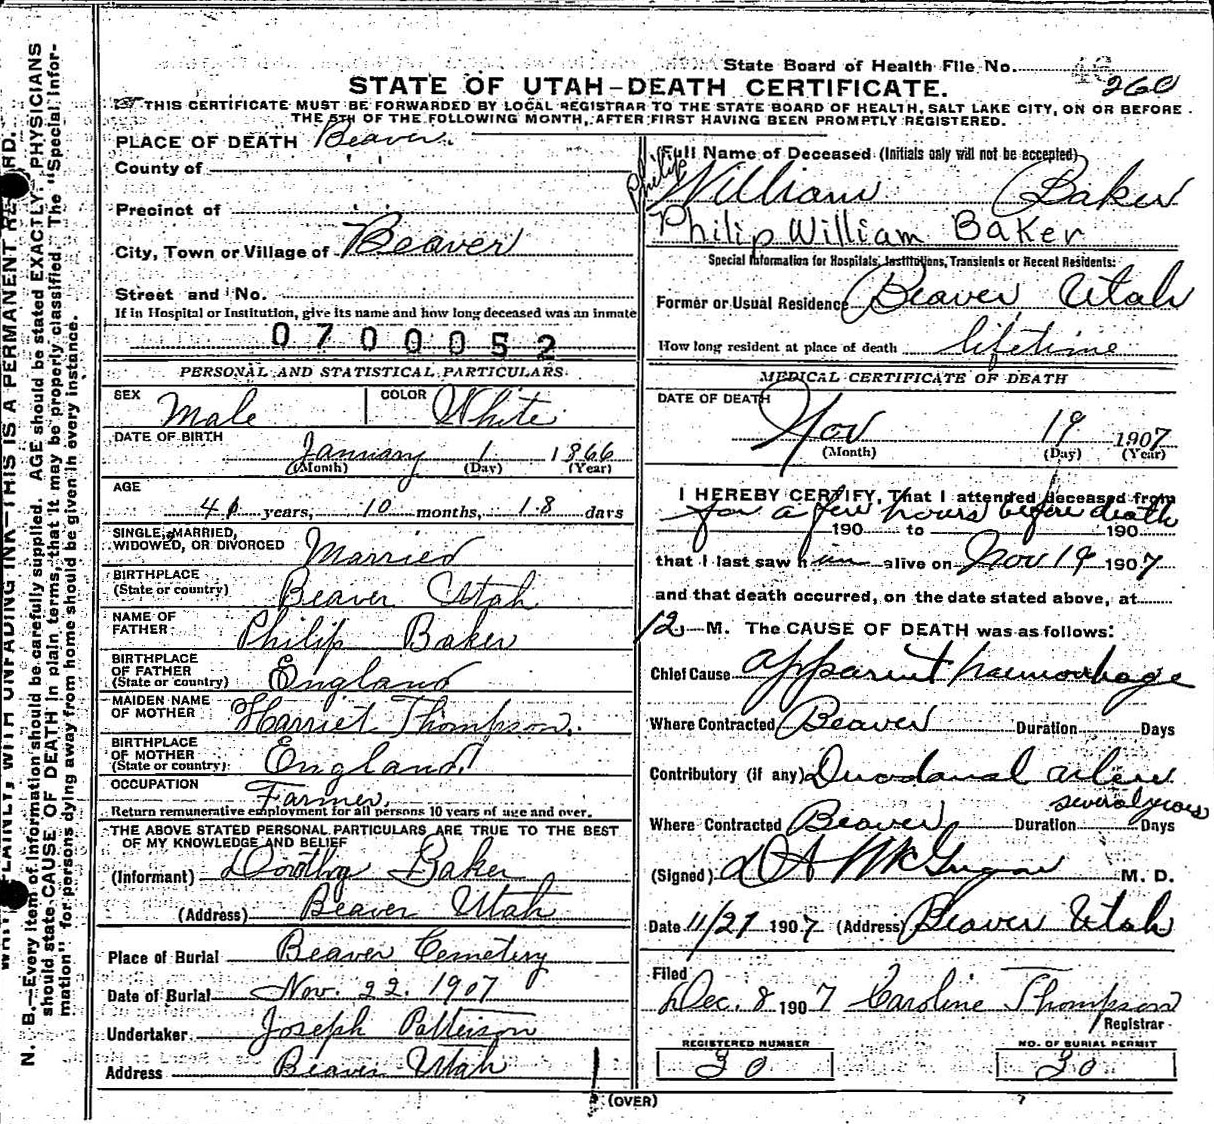 State Board of Health File No. 260
STATE OF UTAH–DEATH CERTIFICATE.
THIS CERTIFICATE MUST BE FORWARDED BY LOCAL REGISTRAR TO THE STATE BOARD OF HEALTH, SALT LAKE CITY, ON OR BEFORE
THE 5TH OF THE FOLLOWING MONTH, AFTER FIRST HAVING BEEN PROMPTLY REGISTERED.
PLACE OF DEATH Beaver.
County of
Precinct of
City, Town or Village of Beaver
Street and No.
If in Hospital or Institution, give its name and how long deceased was an inmate
0700052
PERSONAL AND STATISTICAL PARTICULARS.
SEX Male COLOR White
DATE OF BIRTH January 1 1866
(Month) (Day) (Year)
AGE
41 years, 10 months, 18 days
SINGLE, MARRIED,
WIDOWED, OR DIVORCED Married
BIRTHPLACE
(State or country) Beaver Utah
NAME OF
FATHER Philip Baker
BIRTHPLACE
OF FATHER
(State or country) England
MAIDEN NAME
OF MOTHER Harriet Thompson.
BIRTHPLACE
OF MOTHER
(State or country) England
OCCUPATION Farmer.
Return remunerative employment for all persons 10 years of age and over.
THE ABOVE STATED PERSONAL PARTICULARS ARE TRUE TO THE BEST
OF MY KNOWLEDGE AND BELIEF
(Informant) Dorothy Baker
(Address) Beaver Utah
Place of Burial Beaver Cemetery
Date of Burial Nov. 22. 1907
Undertaker Joseph Patterson
Address Beaver Utah
Full Name of Deceased (Initials only will not be accepted)
Philip William Baker
Philip William Baker
Special Information for Hospitals, Institutions, Transients or Recent Residents:
Former or Usual Residence Beaver Utah
How long resident at place of death lifetime
MEDICAL CERTIFICATE OF DEATH
DATE OF DEATH
Nov 19 1907
(Month) (Day) (Year)
I HEREBY CERTIFY, That I attended deceased from
for a few hours before death
190 to 190
that I last saw him alive on Nov 19 1907
and that death occurred, on the date stated above, at
12 M. The CAUSE OF DEATH was as follows:
Chief Cause apparent haemorrhage
Where Contracted Beaver Duration Days
Contributory (if any) Duodenal ulcer
several years
Where Contracted Beaver Duration Days
(Signed) McGregor M. D.
Date 11/21 1907 (Address) Beaver Utah
Filed
Dec. 8 1907 Caroline Thompson
Registrar
REGISTERED NUMBER NO. OF BURIAL PERMIT
30 30
(OVER)
WRITE PLAINLY, WITH UNFADING INK–THIS IS A PERMANENT RECORD.
N. B.—Every item of information should be carefully supplied. AGE should be stated EXACTLY. PHYSICIANS
should state CAUSE OF DEATH in plain terms, that it may be properly classified. The "Special Infor-
mation" for persons dying away from home should be given in every instance.